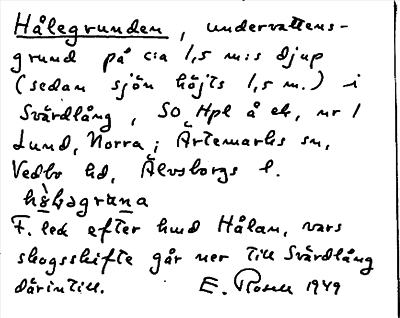 Hålegrunden, undervattens-
grund på c:a 1,5 m:s djup
(sedan sjön höjts 1,5 m.) i
Svärdlång, SO Hpl å ek, nr 1
Lund, Norra; Ärtemarks sn,
Vedbo hd, Älvsborgs l.
F. led efter hmd Hålan, vars
skogsskifte går ner till Svärdlång
därintill. E. Rosell 1949